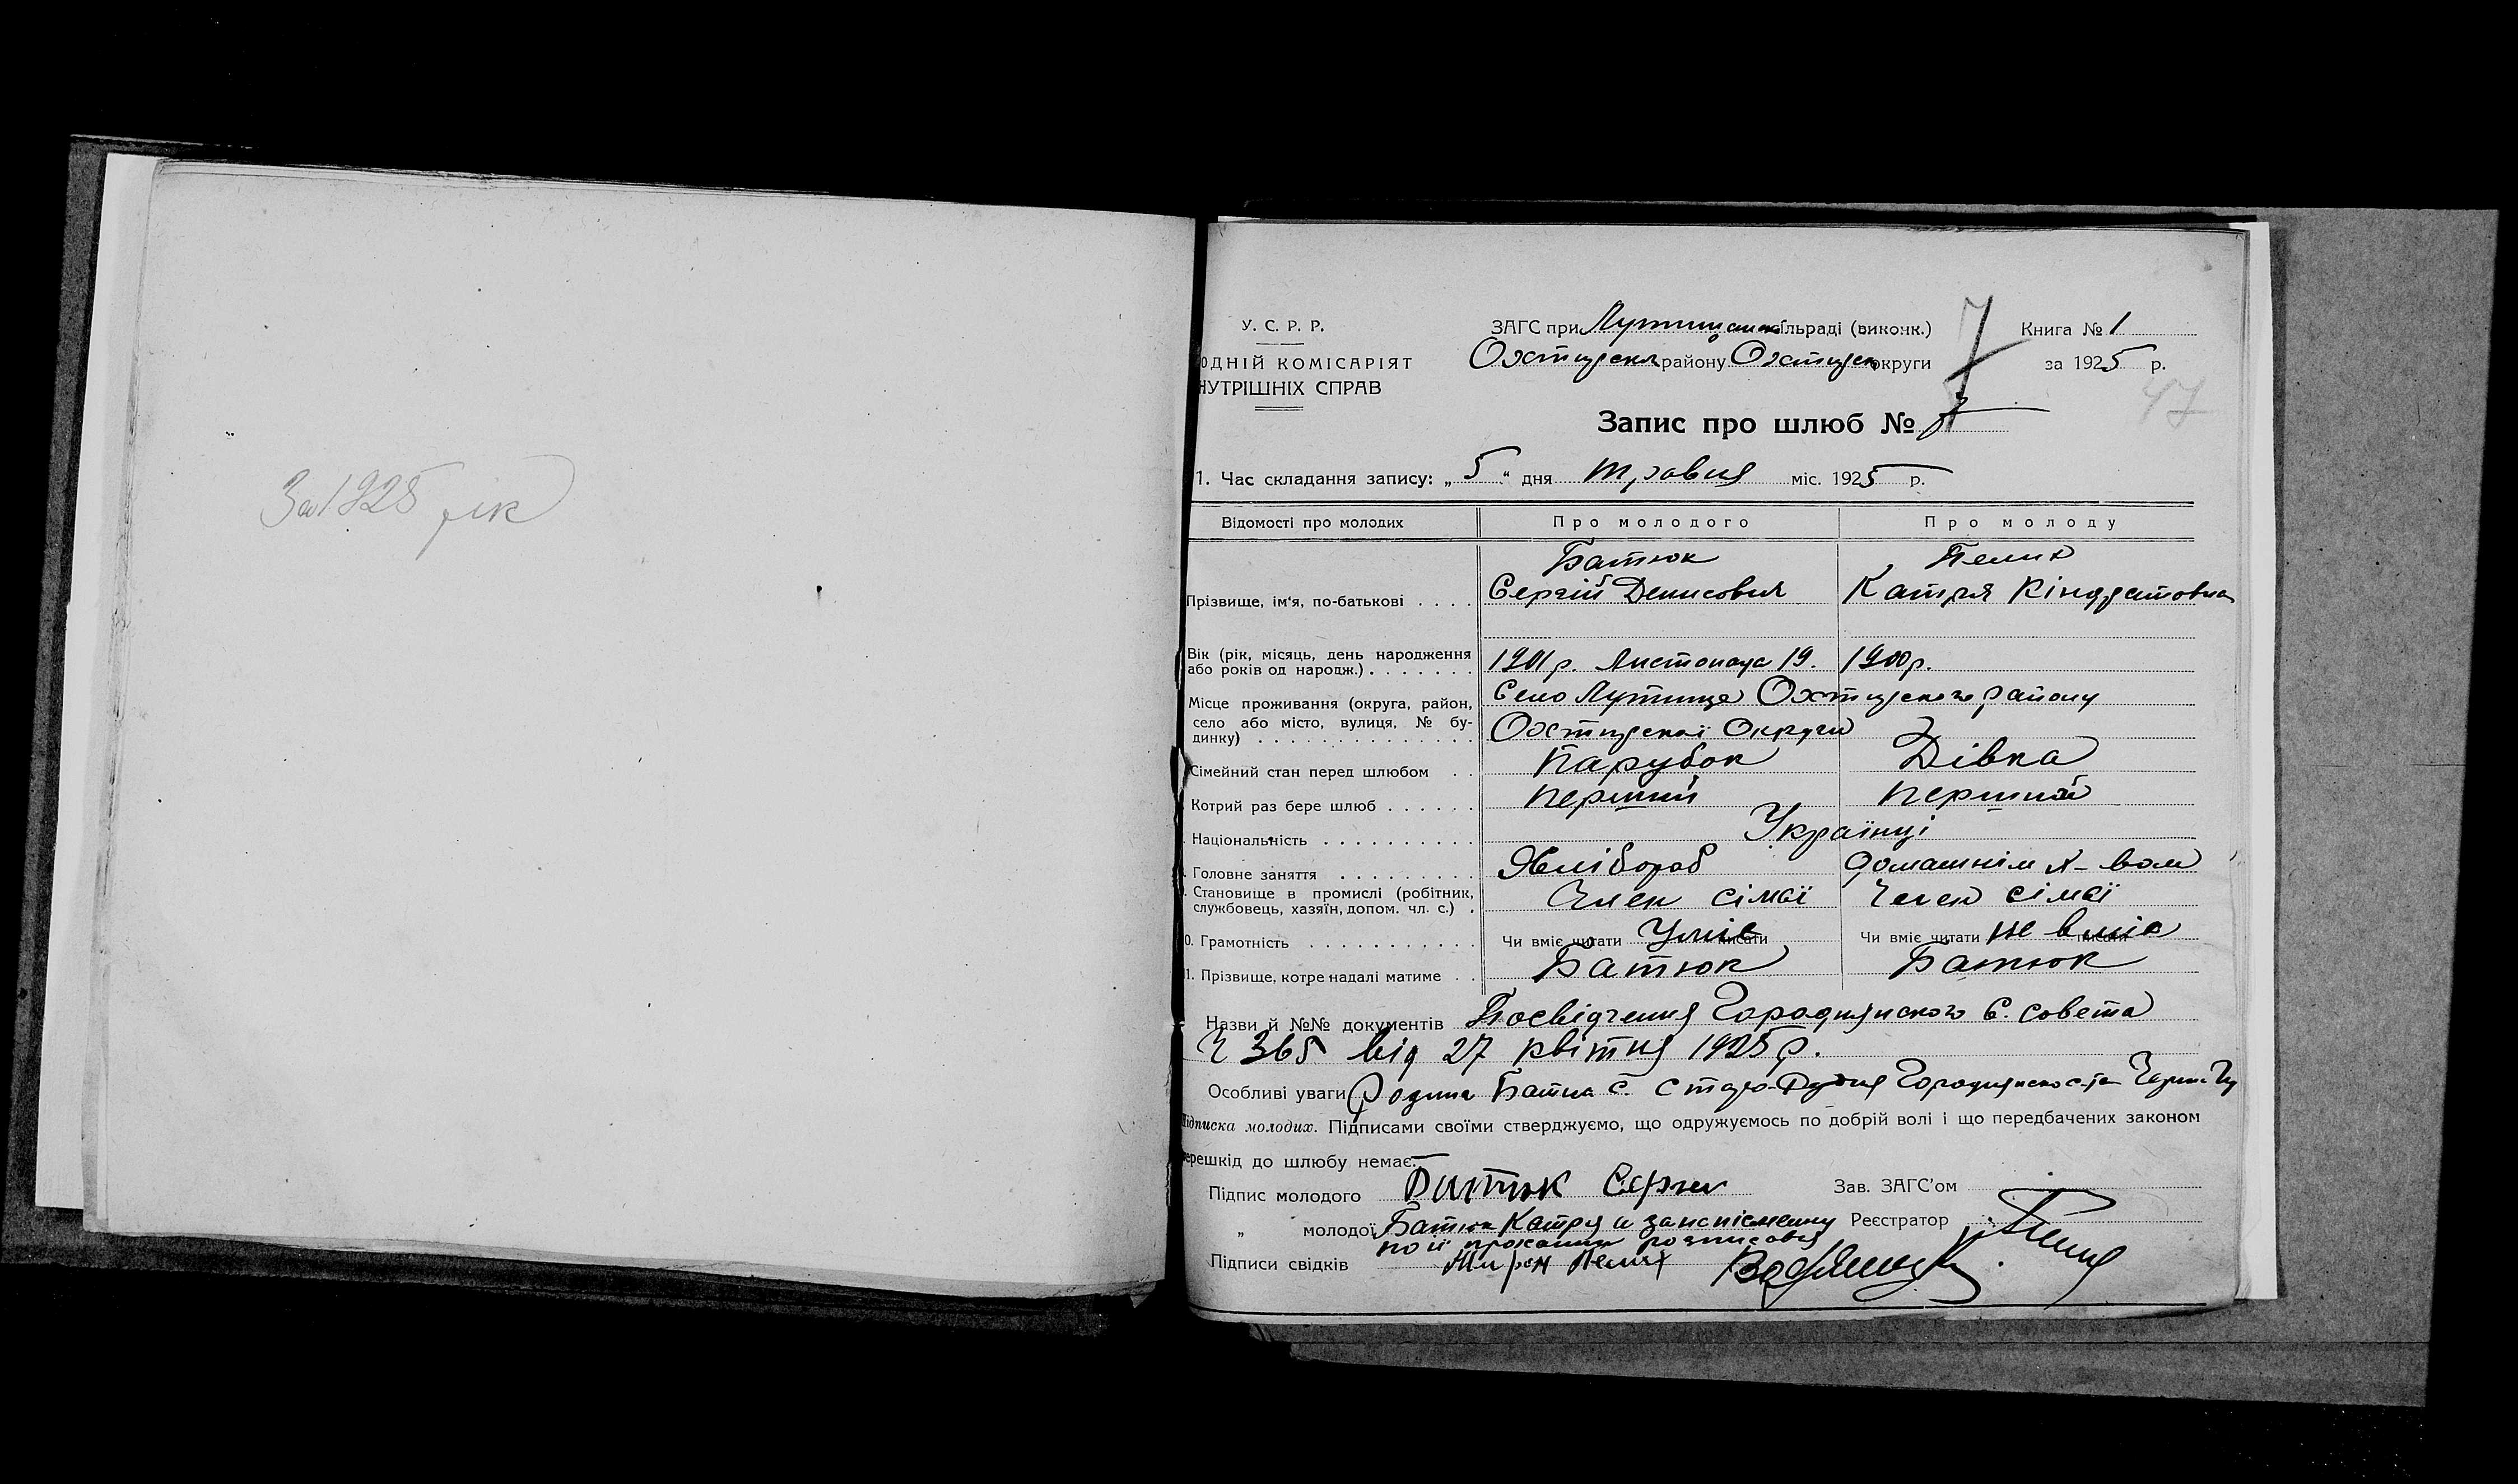 За 1925 рік
У. С. Р. Р.
ОДНІЙ КОМІСАРІЯТ
НУТРІШНІХ СПРАВ
ЗАГС при Лутищанск ільраді (виконк.)
Охтирськ району Охтирськ округи
7
Книга № 1
за 1925 р.
47
Запис про шлюб № 7
1. Час складання запису: „5“ дня травня міс. 1925 р.
Відомості про молодих Про молодого Про молоду
Батюк Пелих
Прізвище, ім'я, по-батькові . . . . Сергій Денисович Катря Кіндратовна
Вік (рік, місяць, день народження
або років од народж.) . . . . . . . 1901 р. Листопада 19. 1900 р.
Місце проживання (округа, район, Село Лутище Охтирського району
село або місто, вулиця, № бу-
динку) . . . . . . . . . . . . . . Охтирської Округи
Сімейний стан перед шлюбом . . Парубок Дівка
Котрий раз бере шлюб . . . . . . Перший Перший
Національність . . . . . . . . . . Українці
Головне заняття . . . . . . . . . Хлібороб домашнім х-вом
Становище в промислі (робітник,
службовець, хазяїн, допом. чл. с.) . Член сімєї Член сімєї
0. Грамотність . . . . . . . . . . . Чи вміє читати Уміє писати Чи вміє читати не вміє писати
11. Прізвище, котре надалі матиме . . Батюк Батюк
Назви й №№ документів Посвідчення Городнянского С. Совета
Ч 365 від 27 квітня 1925 р.
Особливі уваги Родина Батюк с. Старо-Рудня Городнянского
Підписка молодих. Підписами своїми стверджуємо, що одружуємось по добрій волі і що передбачених законом
ерешкід до шлюбу немає.
Підпис молодого Батюк Сергій Зав. ЗАГС'ом
„ молодої Батюк Катря а за неписменну Реєстратор
по її проханню розписався
Підписи свідків Мирон Пелих